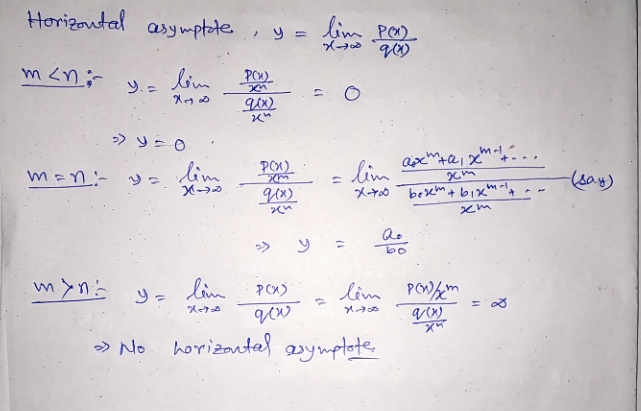 Horizontal asymptote, y = lim x→∞ P(x)/q(x)
m<n:- y = lim x→∞ (P(x)/xn)/(q(x)/xn) = 0
⇒ y = 0
m=n:- y = lim x→∞ (P(x)/xm)/(q(x)/xn) = lim x→∞ ((a0xm+a1xm-1+...)/xm)/((b0xm+b1xm-1+...)/xm) (say)
⇒ y = a0/b0
m>n:- y = lim x→∞ P(x)/q(x) = lim x→∞ (P(x)/xm)/(q(x)/xn) = ∞
⇒ No horizontal asymptote.